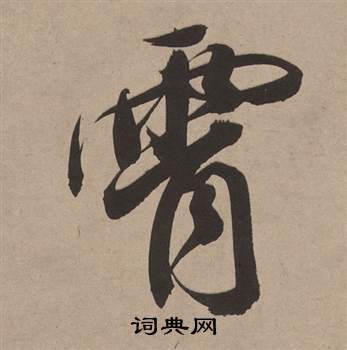 霄
词典网